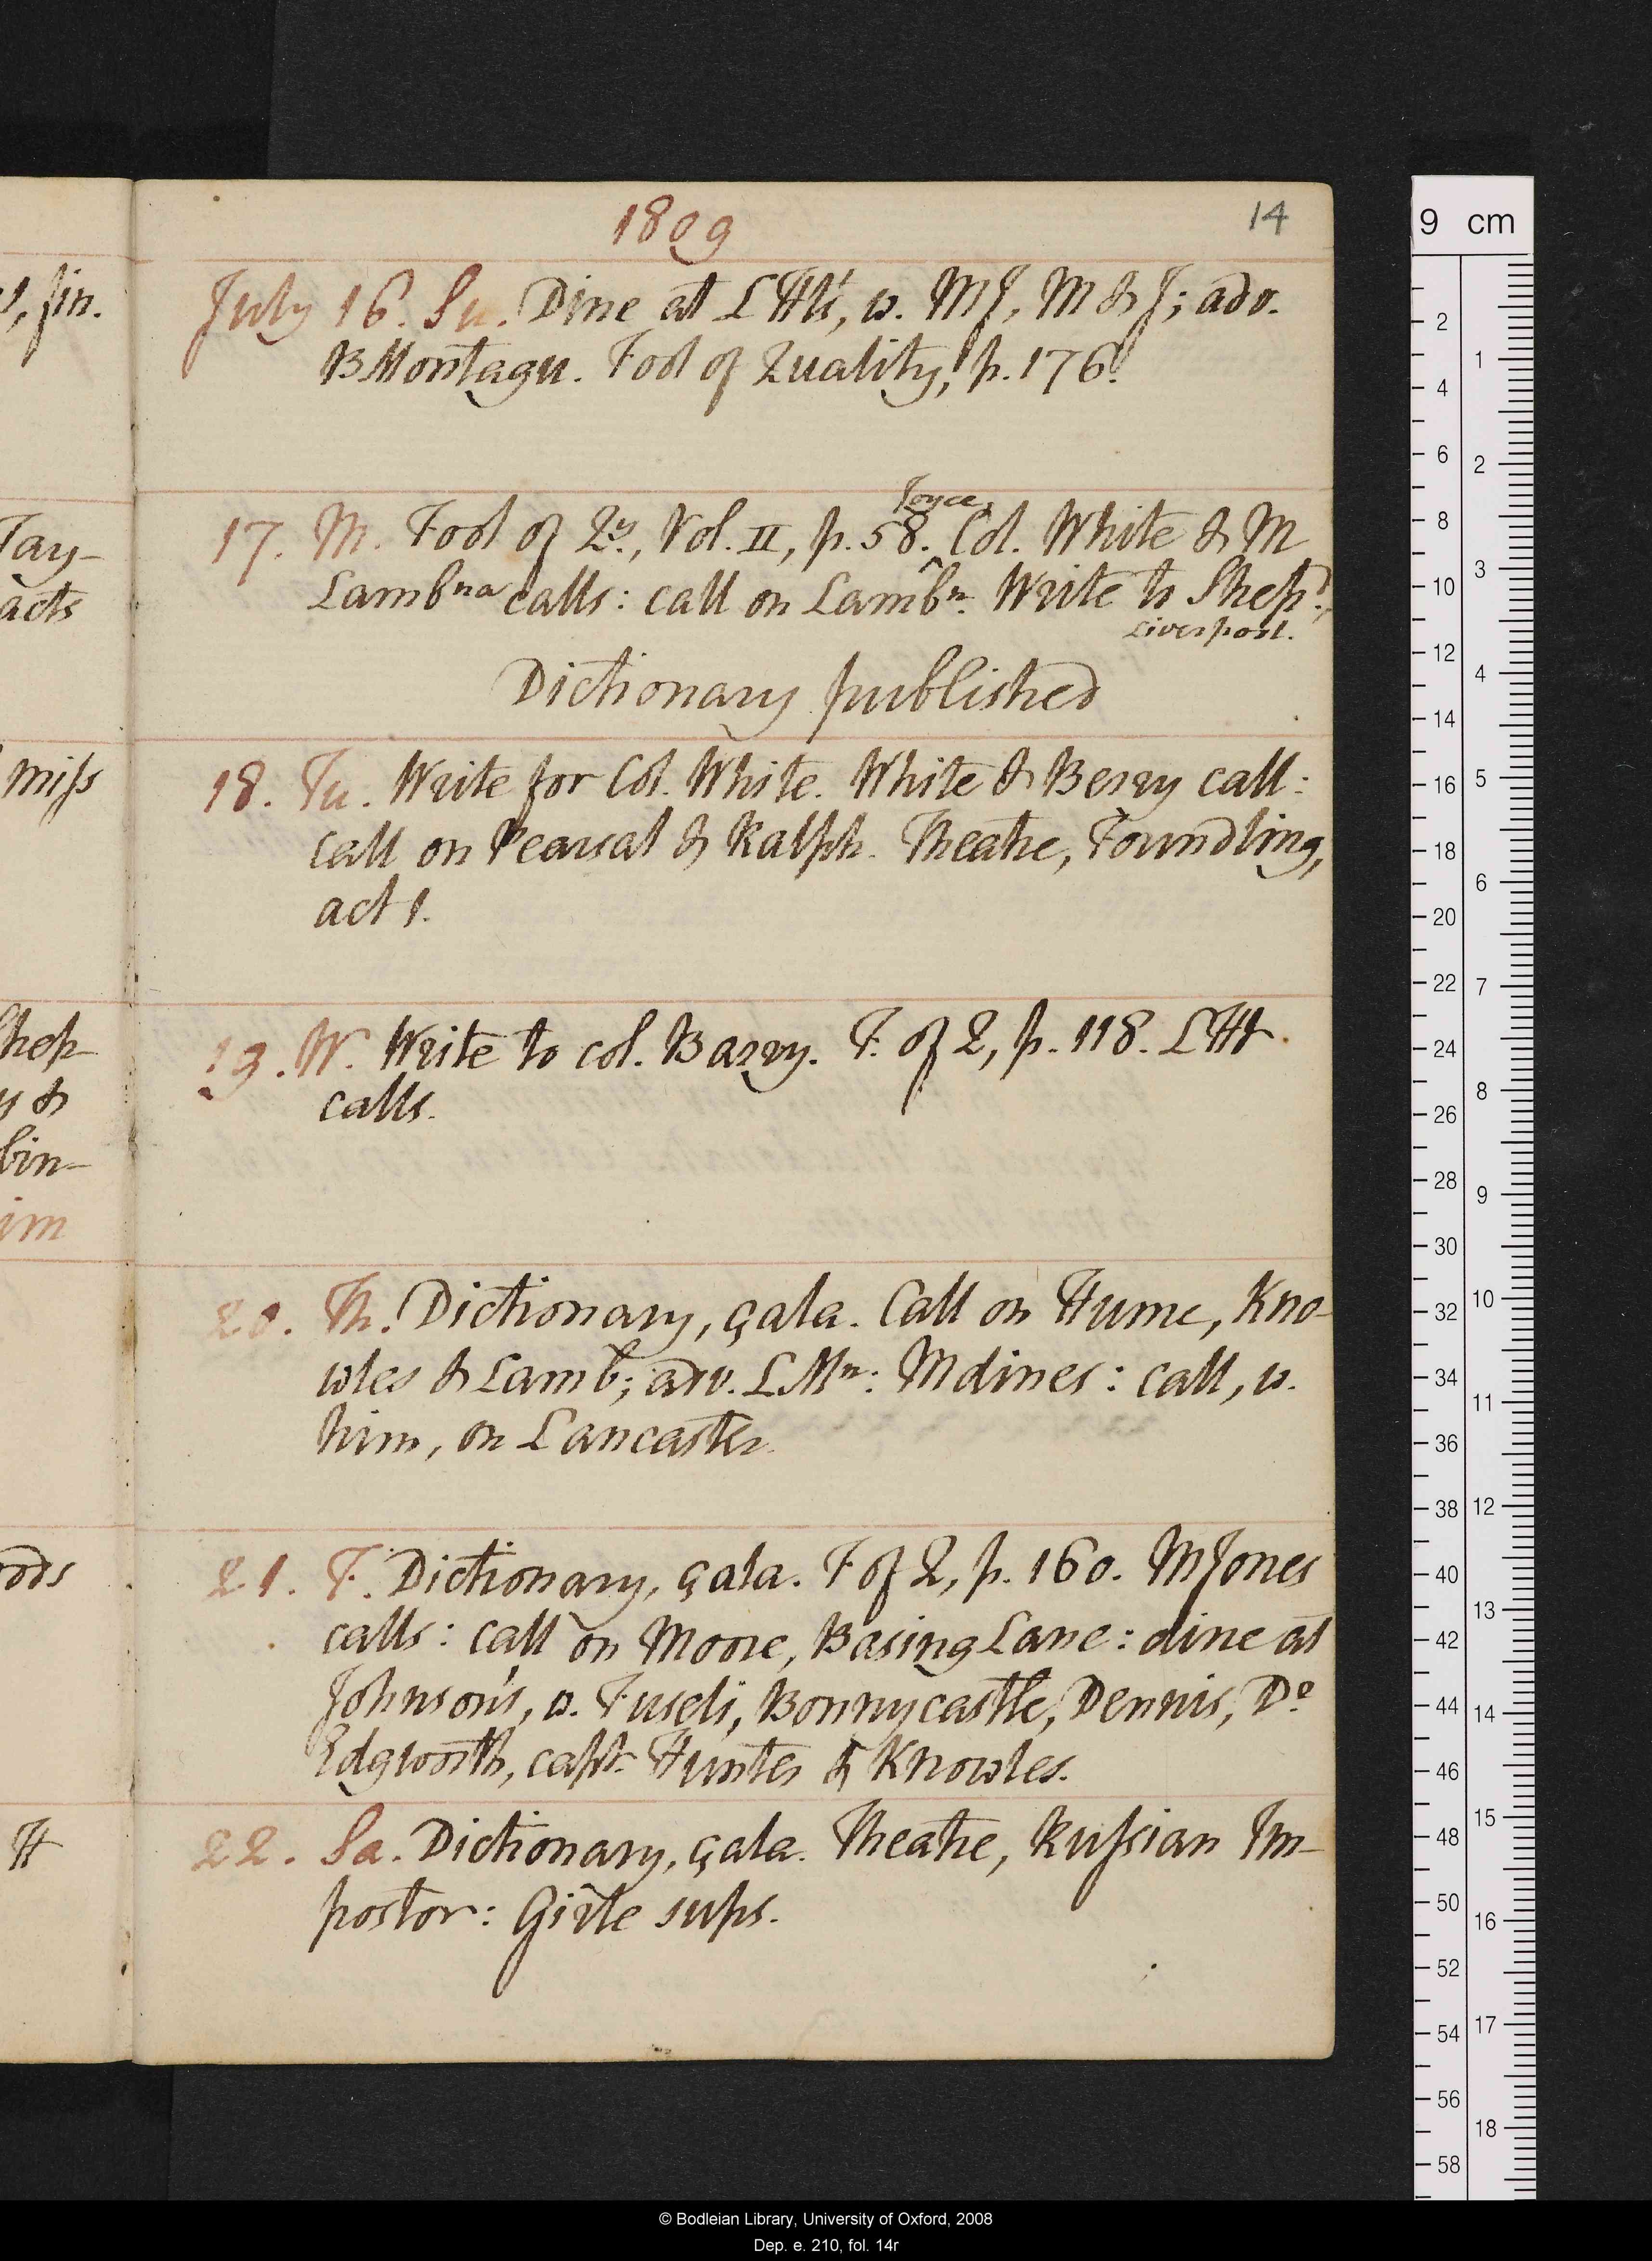 1809
14
July 16. Su. Dine at LHt's, w. MJ, M & J; adv.
BMontagu. Fool of Quality, p. 176.
17. M. Fool of Qy., Vol. II, p. 58. Joyce, Col. White & M
Lambna calls: call on Lambn. Write to Shepd.,
Liverpool.
Dictionary published
18. Tu. Write for Col. White. White & Berry call:
call on Pearsal & Ralph. Theatre, Foundling,
act 1.
19. W. Write to col. Barry. F. of Q, p. 118. LHt
calls.
20. Th. Dictionary, çala. Call on Hume, Kno-
wles & Lamb; adv. LMn: M dines: call, w.
him, on Lancaster.
21. F. Dictionary, çala. F of Q, p. 160. MJones
calls: call on Moore, Basing Lane: dine at
Johnson's, w. Fuseli, Bonnycastle, Dennis, Do
Edgworth, capt. Hunter & Knowles.
22. Sa. Dictionary, çala. Theatre, Russian Im-
postor: Girle sups.
fin.
Tay-
acts
miss
Shep-
& 
bin-
im
H
9 cm
2
4
6
8
10
12
14
16
18
20
22
24
26
28
30
32
34
36
38
40
42
44
46
48
50
52
54
56
58
1
2
3
4
5
6
7
8
9
10
11
12
13
14
15
16
17
18
© Bodleian Library, University of Oxford, 2008
Dep. e. 210, fol. 14r